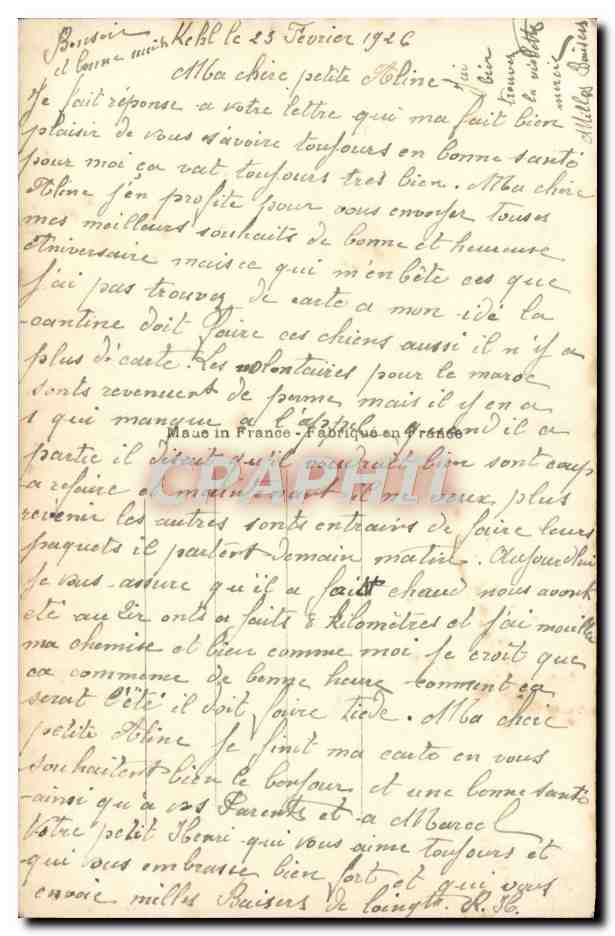 Bonsoir
et bonne nuit
Kehl le 23 Février 1926
j'ai
bien
trouvez
la violette
merci
Milles Baisers
Ma chère petite Aline
Je fait réponse a votre lettre qui ma fait bien
plaisir de vous savoire toujours en bonne santé
pour moi ça vat toujours tres bien. Ma chère
Aline j'en profite pour vous envoyer touses
mes meilleurs souhaits de bonne et heureuse
Aniversaire mais ce qui m'enbête ces que
J'ai pas trouvez de carte a mon idé la
cantine doit faire ces chiens aussi il n'y a
plus de carte. Les volontaires pour le maroc
sonts revenuent de perme mais il y en a
1 qui manque a l'appel quand il a
Made in France - Fabriqué en France
partie il disait qu'il voudrait bien sont coup
CPAPHIL
a refaire et maintenant il ne veux plus
revenir les autres sonts entrains de faire leurs
paquets il partent demain matin. Aujourd'hui
Je vous assure qu'il a fait chaud nous avont
eté au tir onts a faits 8 kilomètres et j'ai mouillé
ma chemise et bien comme moi Je croit que
ca commence de bonne heure comment ça
serat l'été il doit faire tiède. Ma chère
petite Aline Je finit ma carte en vous
souhaitent bien le bonjour et une bonne santé
ainsi qu'à vos Parents et a Marcel
Votre petit Henri qui vous aime toujours et
qui vous embrasse bien fort et qui vous
envoie milles Baisers de loingts. R. H.